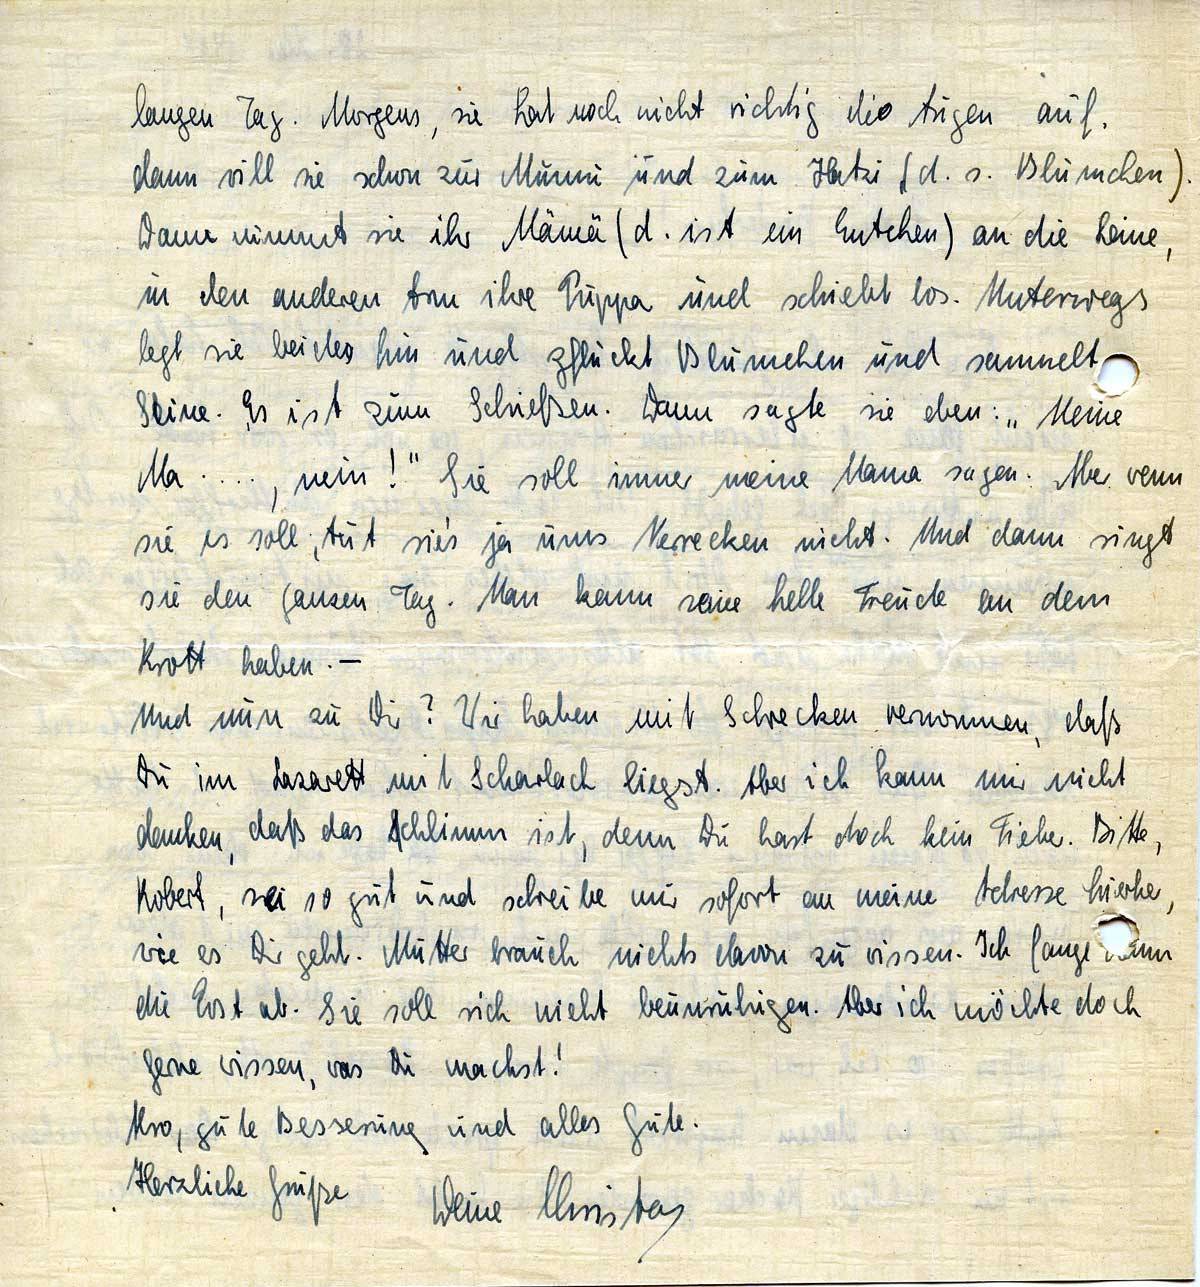 langen Tag. Morgens, sie hat noch nicht richtig die Augen auf,
dann will sie schon zur Mummi und zum Hatzi (d. s. Blümchen).
Dann nimmt sie ihr Mämä (d. ist ein Entchen) an die Leine,
in den anderen Arm ihre Puppa und schiebt los. Unterwegs
legt sie beides hin und pflückt Blümchen und sammelt
Steine. Es ist zum Schießen. Dann sagte sie eben: „Meine
Ma ...., nein!" Sie soll immer meine Mama sagen. Aber wenn
sie es soll, tut sie's ja ums Verrecken nicht. Und dann singt
sie den ganzen Tag. Man kann seine helle Freude an dem
Krott haben. –
Und nun zu Dir? Wir haben mit Schrecken vernommen, daß
Du im Lazarett mit Scharlach liegst. Aber ich kann mir nicht
denken, daß das schlimm ist, denn Du hast doch kein Fieber. Bitte,
Robert, sei so gut und schreibe mir sofort an meine Adresse hierher,
wie es Dir geht. Mutter brauch nichts davon zu wissen. Ich fange dann
die Post ab. Sie soll sich nicht beunruhigen. Aber ich möchte doch
gerne wissen, was Du machst!
Also, gute Besserung und alles Gute.
Herzliche Grüße
Deine